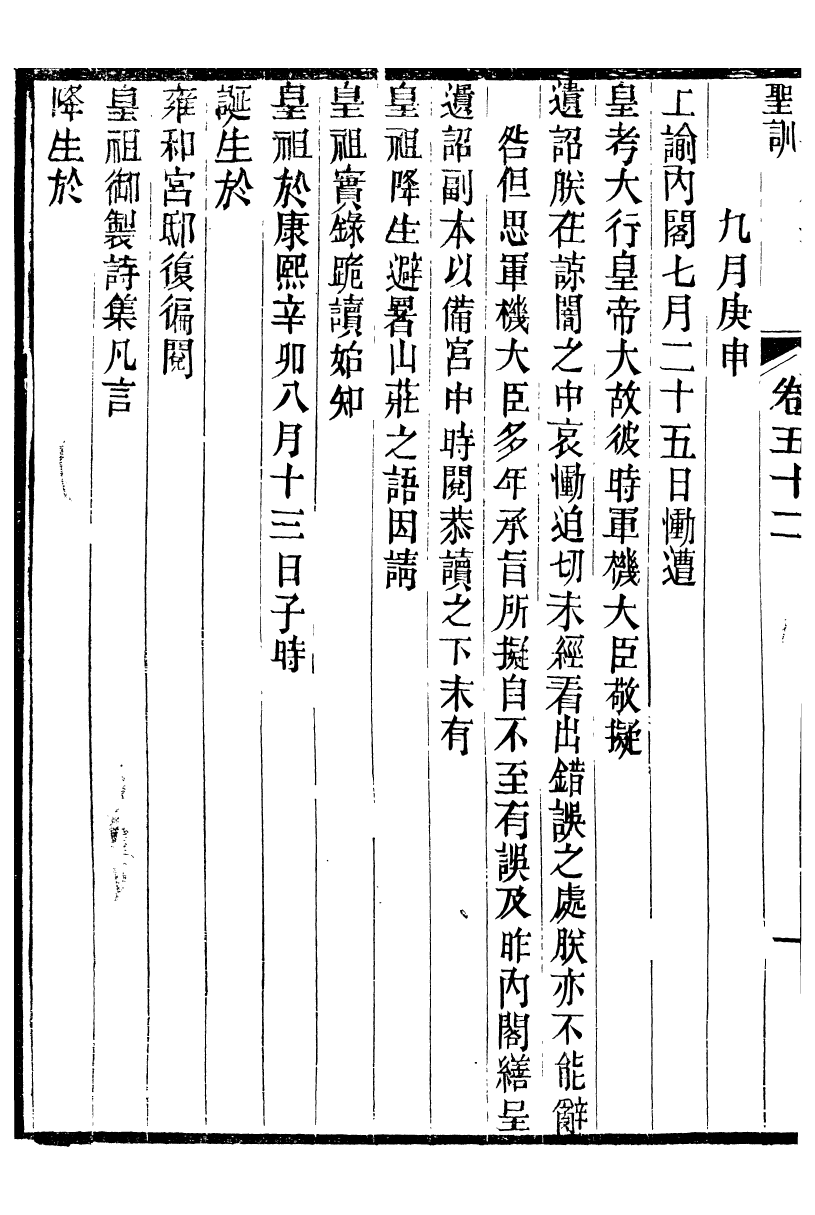 聖訓　卷五十二　一
九月庚申
上諭內閣七月二十五日慟遭
皇考大行皇帝大故彼時軍機大臣敬擬
遺詔朕在諒闇之中哀慟迫切未經看出錯誤之處朕亦不能辭
咎但思軍機大臣多年承旨所擬自不至有誤及昨內閣繕呈
遺詔副本以備宮中時閱恭讀之下末有
皇祖降生避暑山莊之語因請
皇祖實錄跪讀始知
皇祖於康熙辛卯八月十三日子時
誕生於
雍和宮邸復徧閱
皇祖御製詩集凡言
降生於